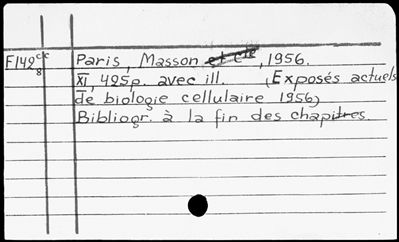 F142cc8 Paris, Masson et Cie, 1956.
XI, 425p. avec ill. (Exposés actuels
de biologie cellulaire 1956)
Bibliogr. à la fin des chapitres.